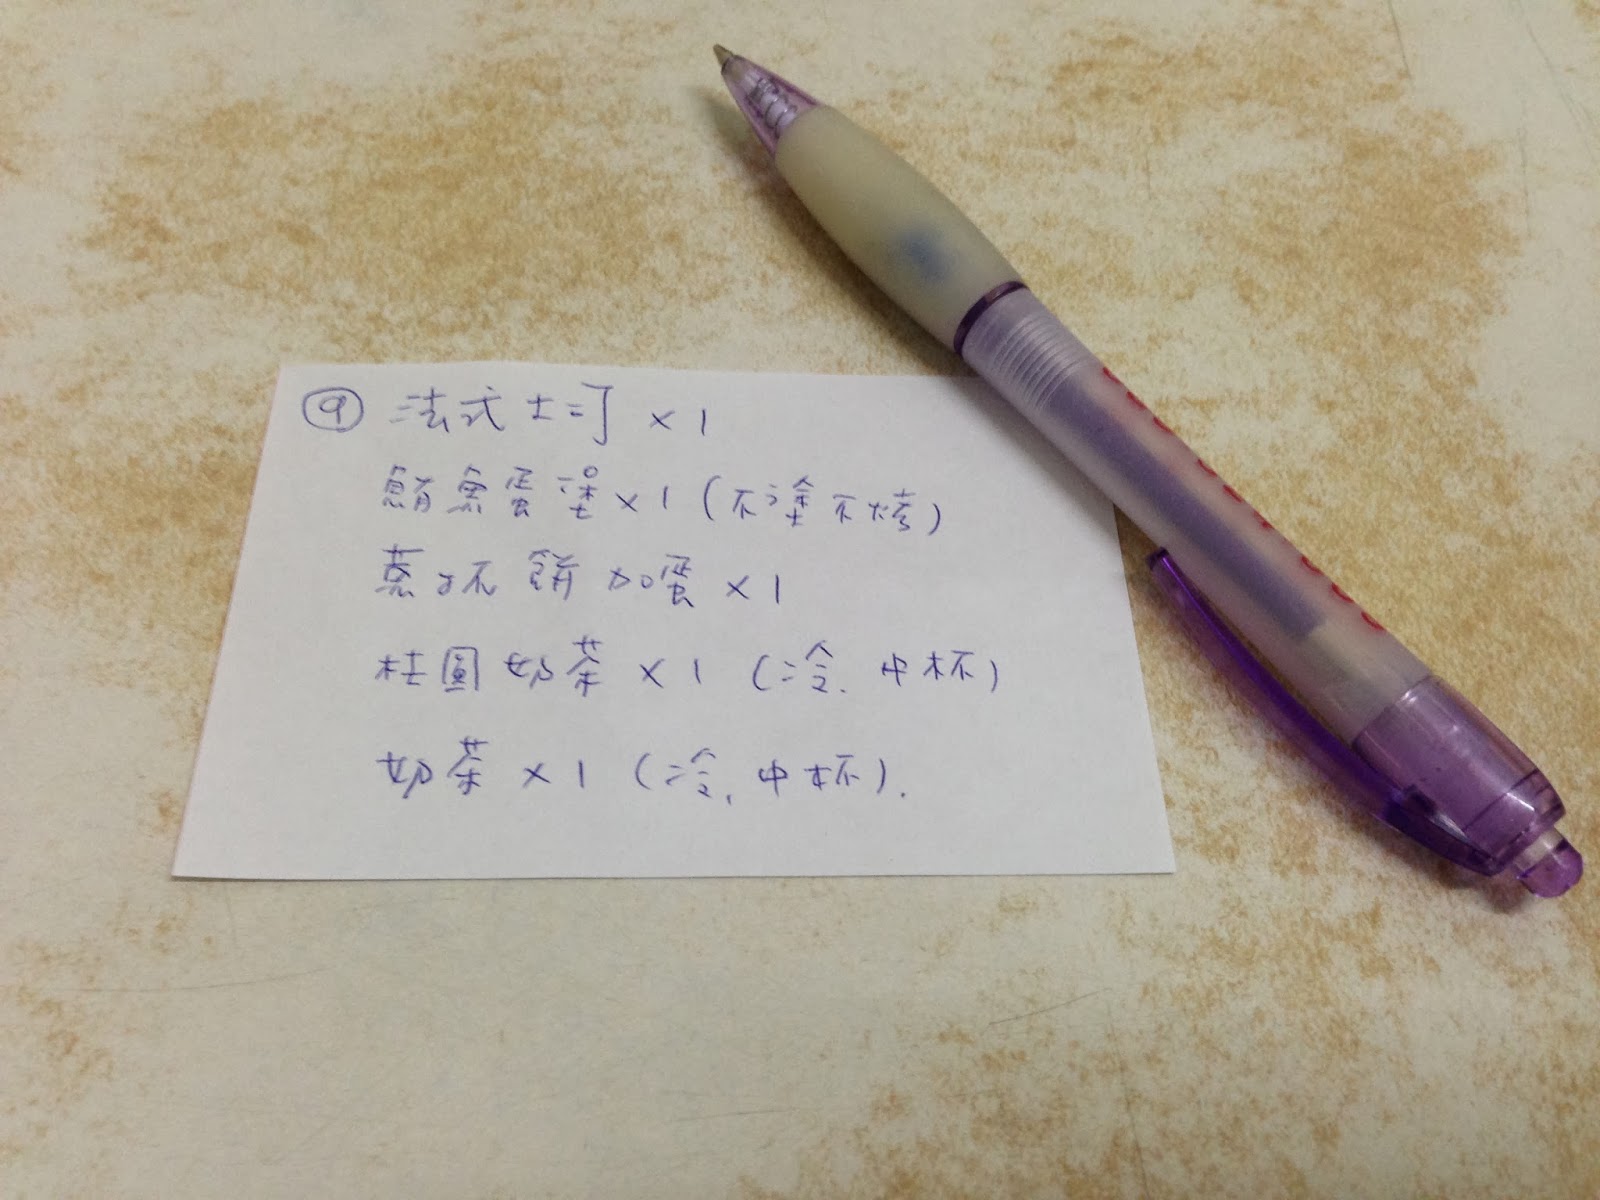 ⑨ 法式土司 x 1
鮪魚蛋堡 x 1 (不塗不烤)
蒸抓餅加蛋 x 1
桂圓奶茶 x 1 (冷、中杯)
奶茶 x 1 (冷、中杯).